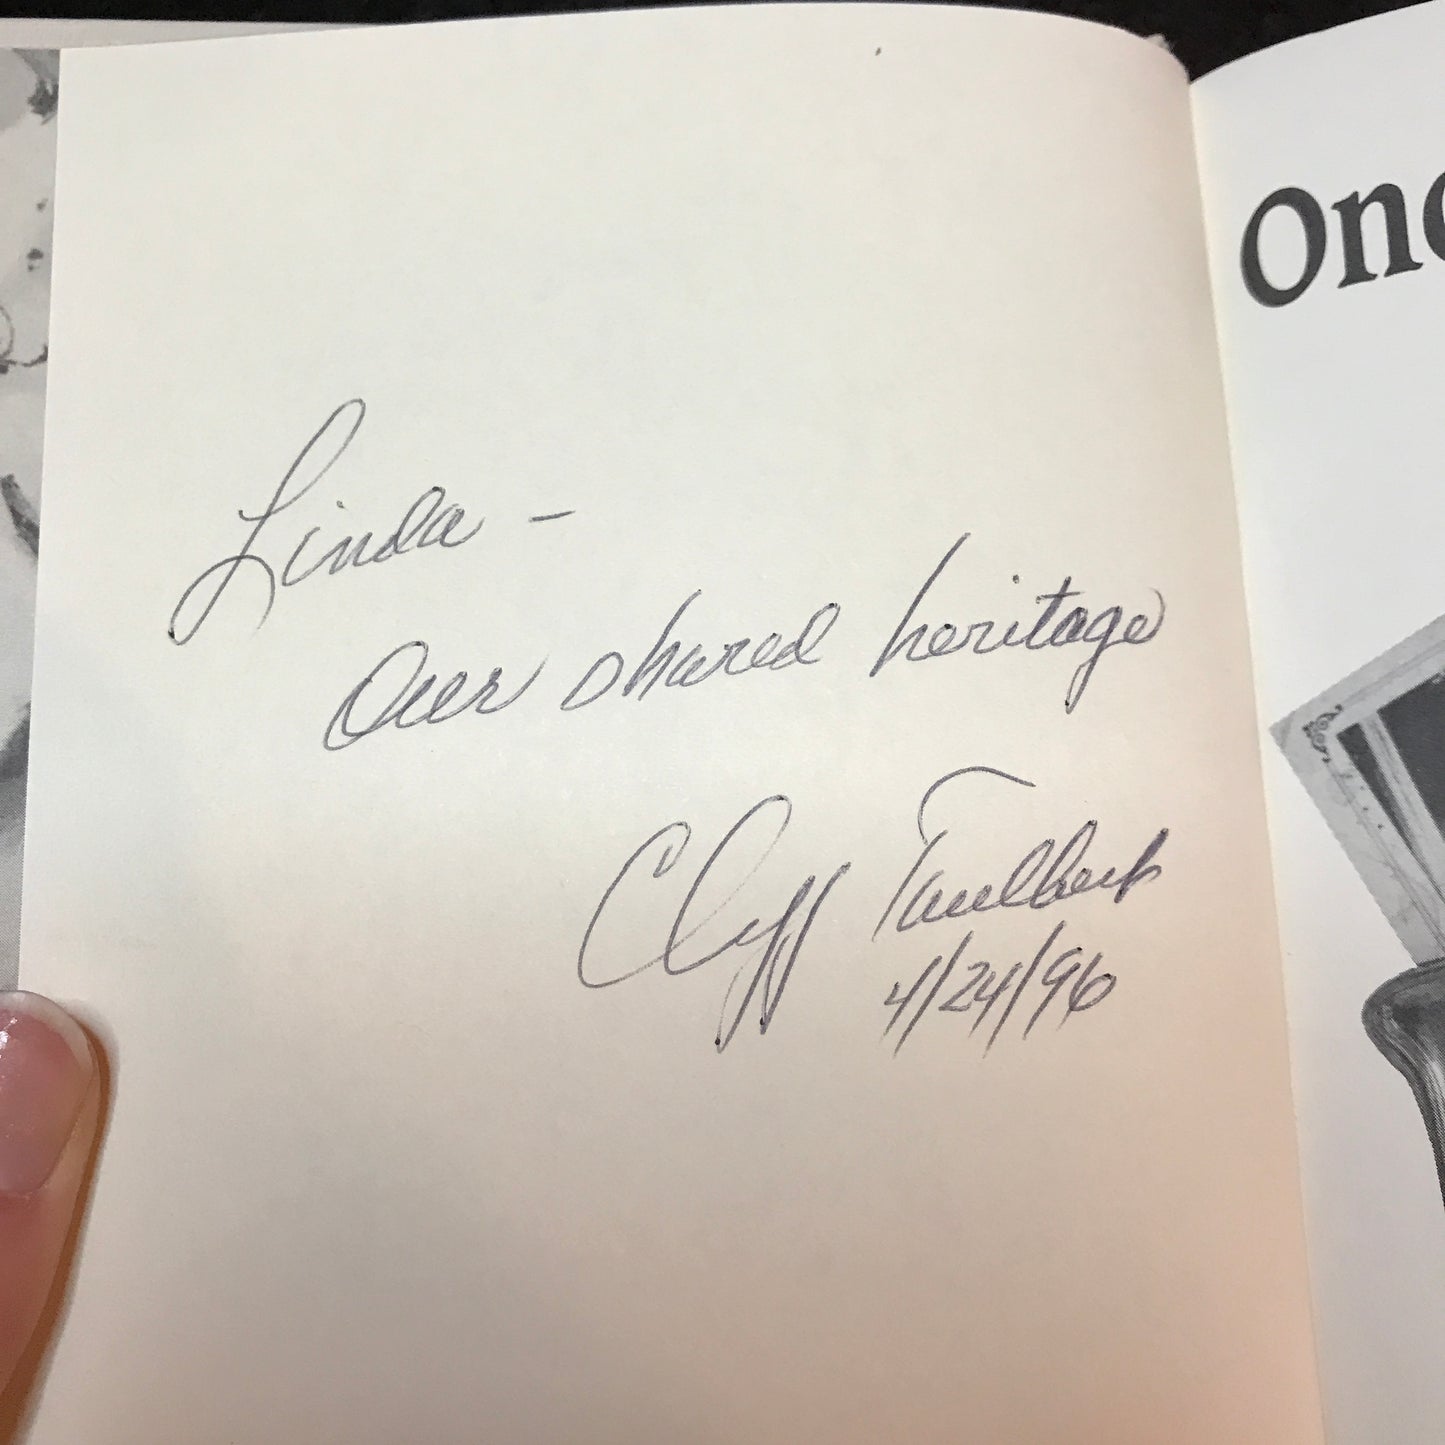 Linda –
Our shared heritage
Cliff
4/24/96
Onc